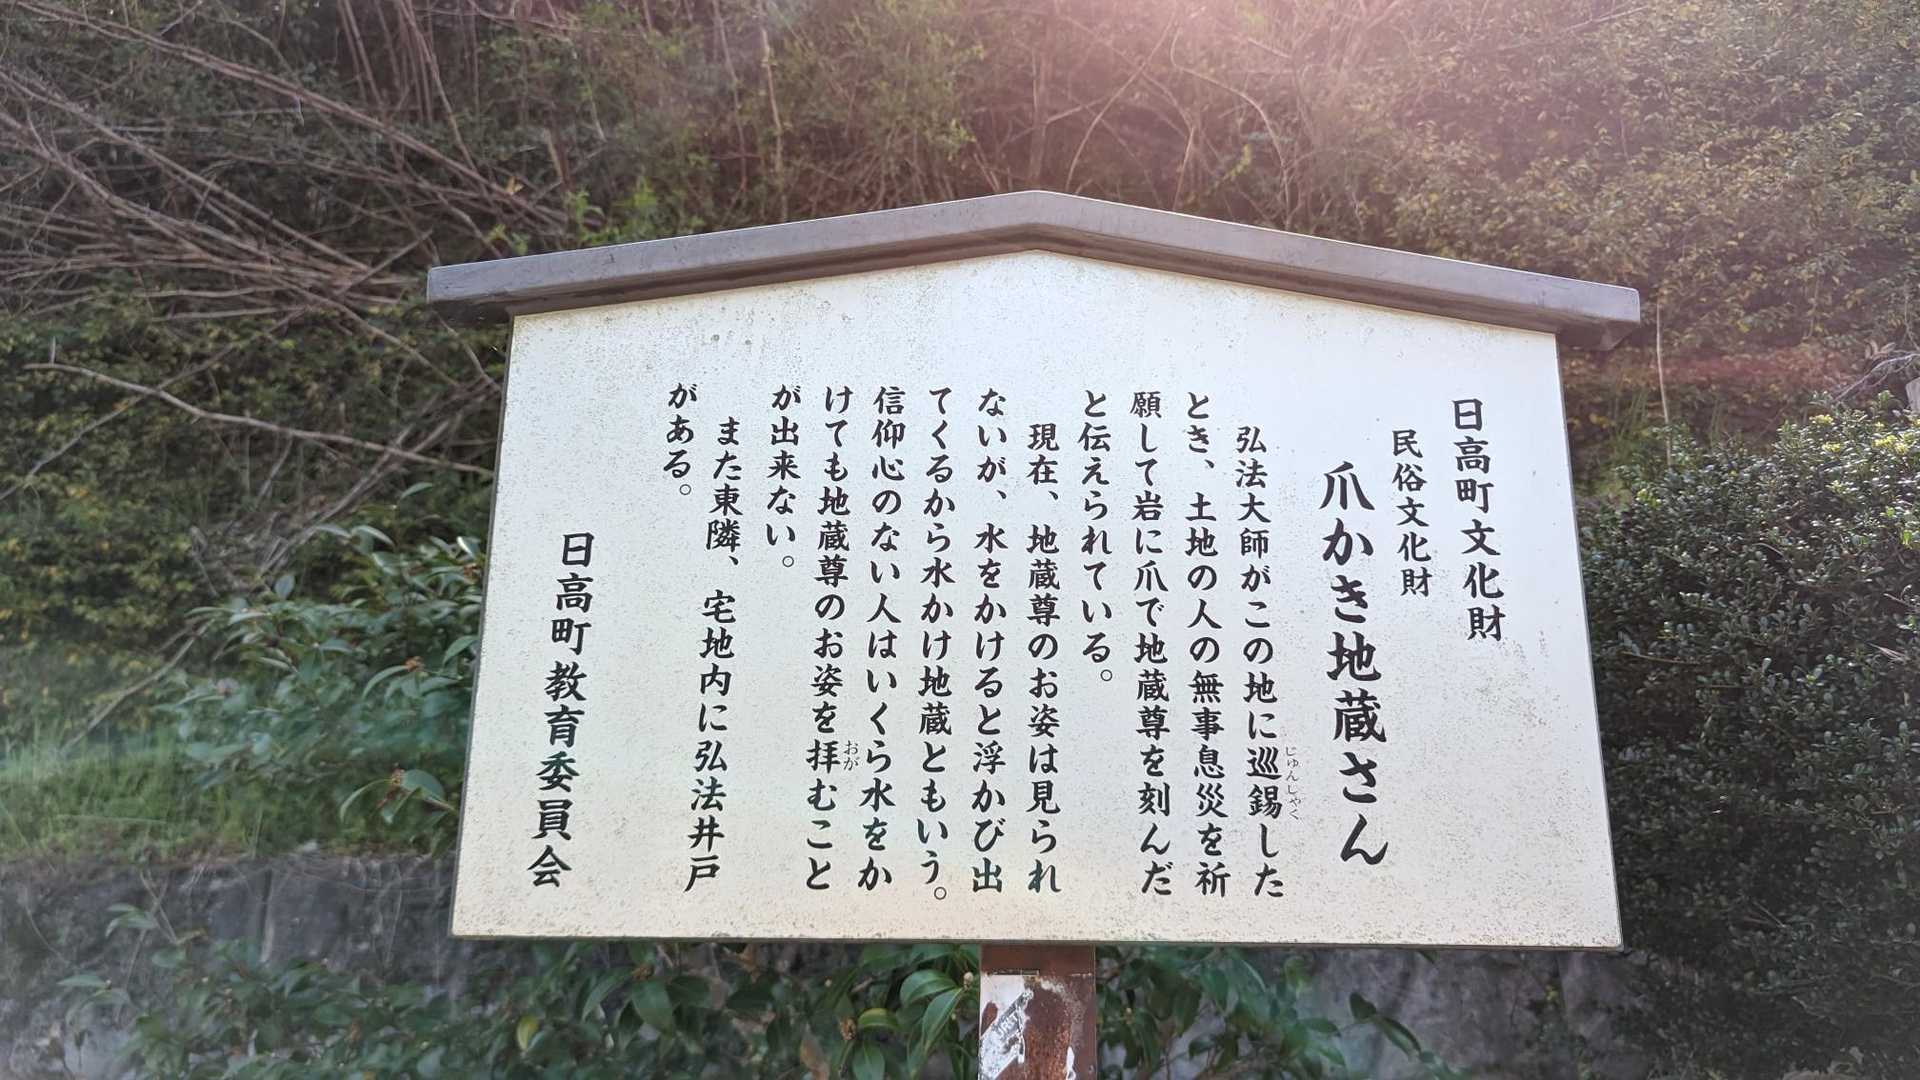 日高町文化財
民俗文化財
爪かき地蔵さん
弘法大師がこの地に巡錫した
じゅんしゃく
とき、土地の人の無事息災を祈
願して岩に爪で地蔵尊を刻んだ
と伝えられている。
現在、地蔵尊のお姿は見られ
ないが、水をかけると浮かび出
てくるから水かけ地蔵ともいう。
信仰心のない人はいくら水をか
けても地蔵尊のお姿を拝むこと
おが
が出来ない。
また東隣、宅地内に弘法井戸
がある。
日高町教育委員会